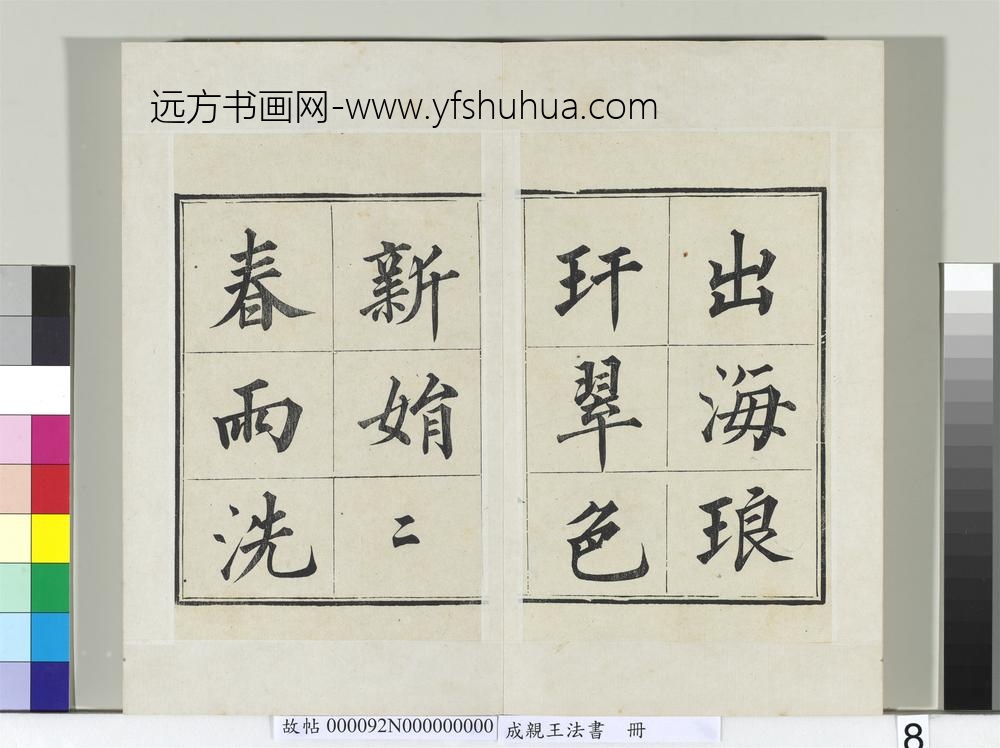 远方书画网-www.yfshuhua.com
出海琅
玕翠色
新姢二
春雨洗
故帖 000092N000000000 成親王法書 冊
8